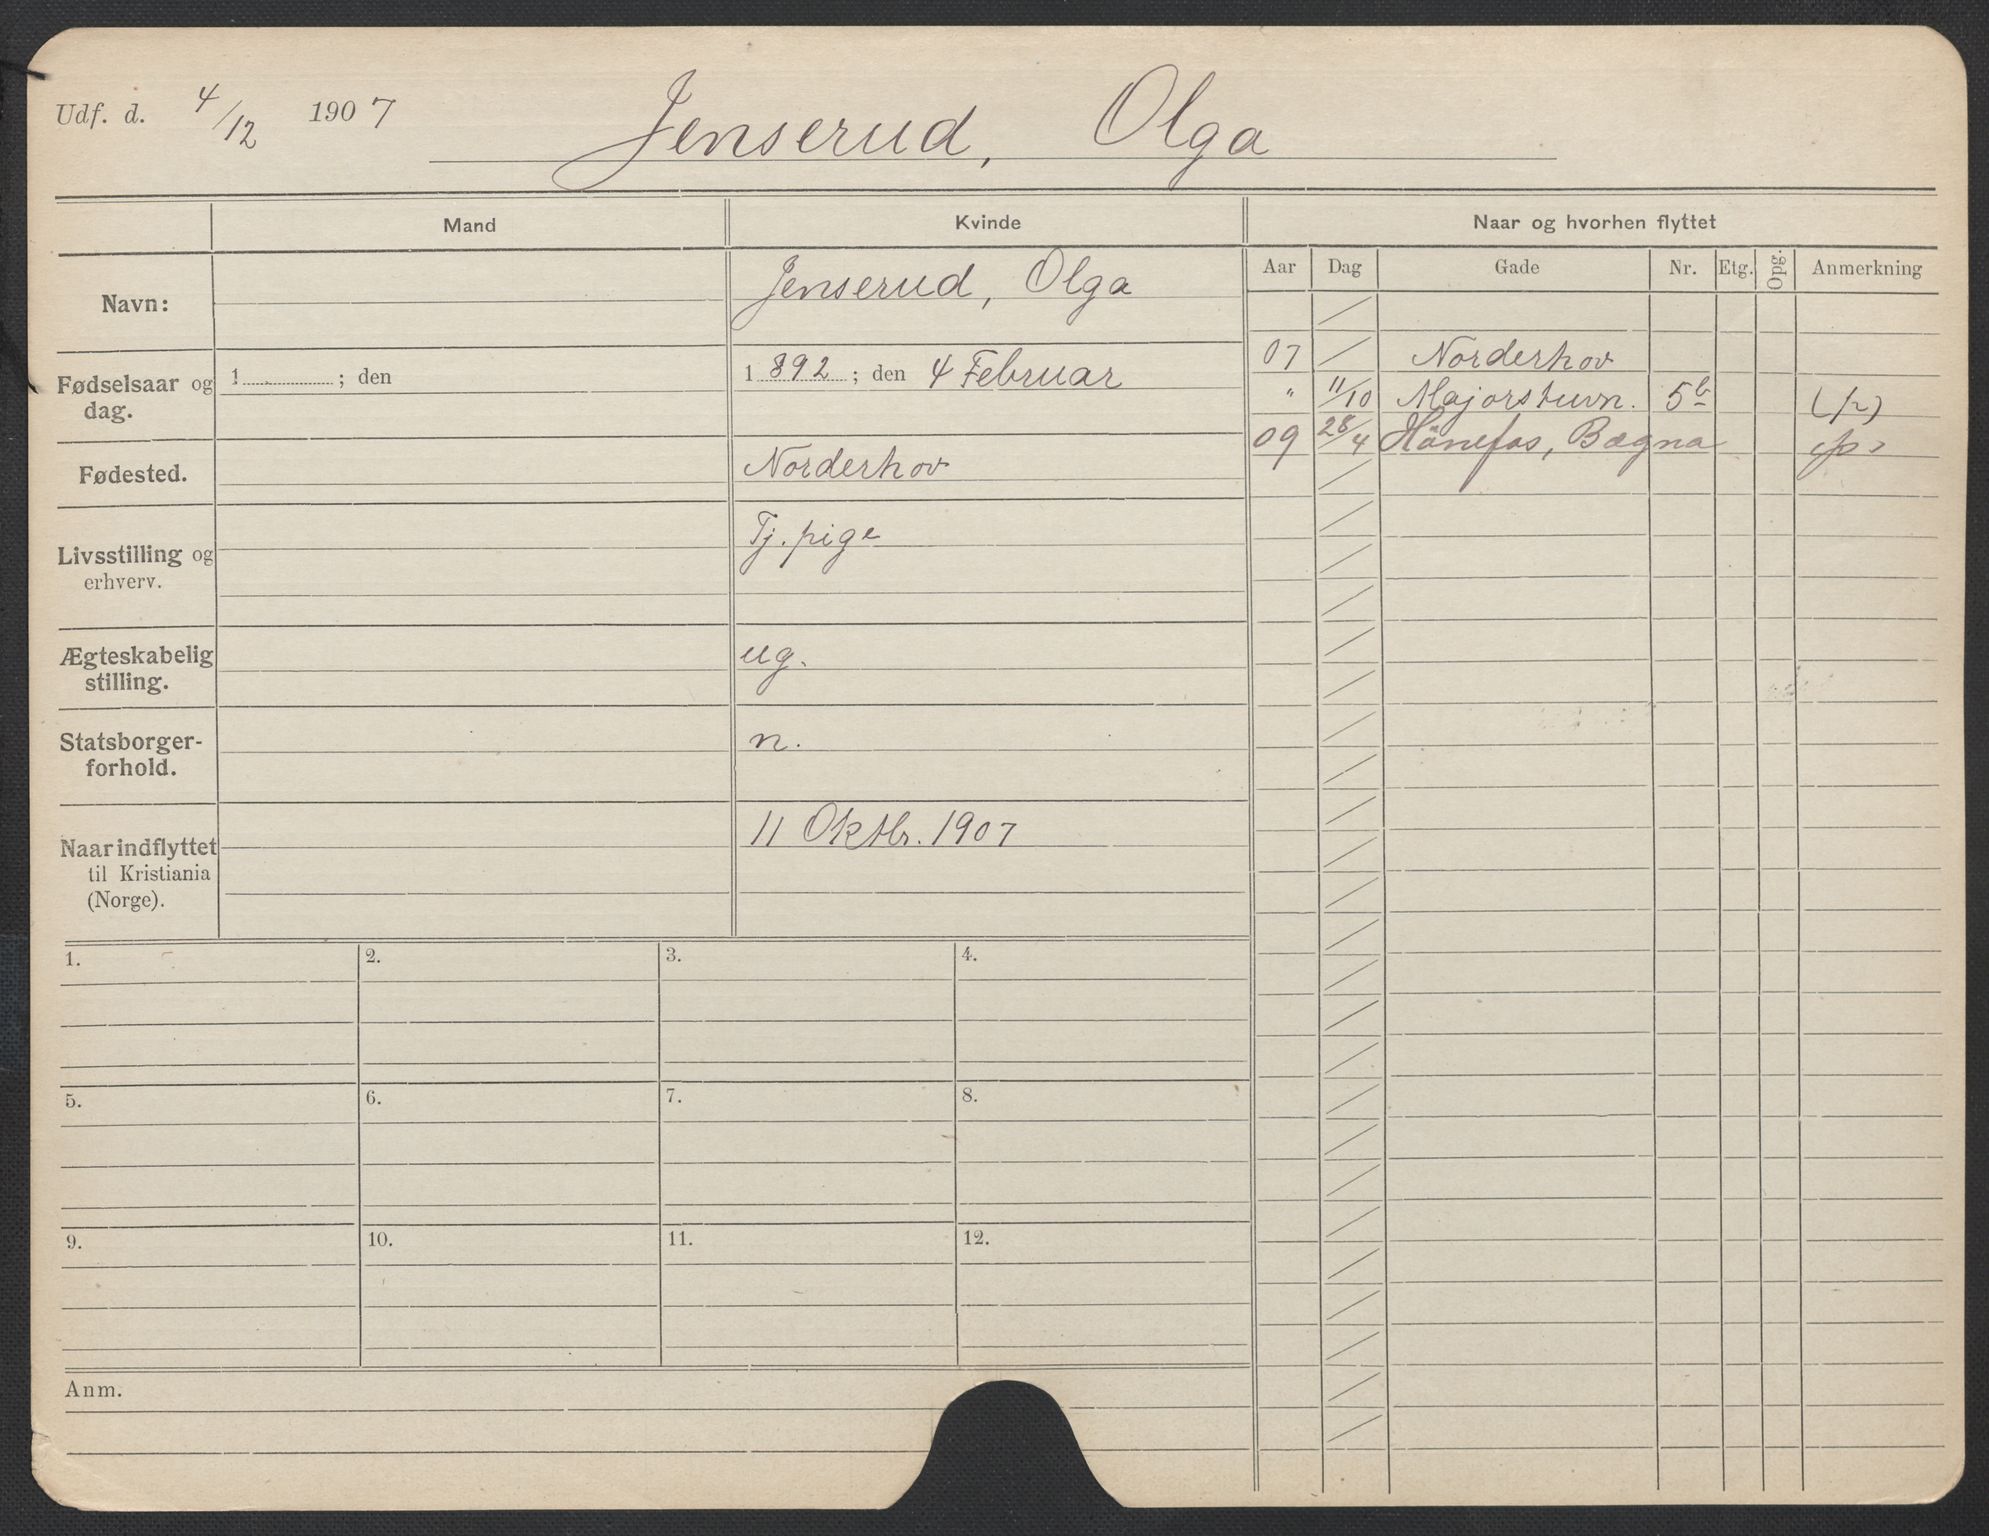 Udf. d. 4/12 1907 Jenserud, Olga
Mand Kvinde Naar og hvorhen flyttet
Aar Dag Gade Nr. Etg. Opg. Anmerkning
Navn: Jenserud, Olga
Fødselsaar og dag. 1 ; den 1892 ; den 4 Februar
Fødested. Norderhov
Livsstilling og erhverv. Tj. pige
Ægteskabelig stilling. ug.
Statsborger-forhold. n.
Naar indflyttet til Kristiania (Norge). 11 Oktbr. 1907
07 Norderhov
" 11/10 Majorstuvn. 5b
09 28/4 Hönefos, Bægna
1. 2. 3. 4.
5. 6. 7. 8.
9. 10. 11. 12.
Anm.